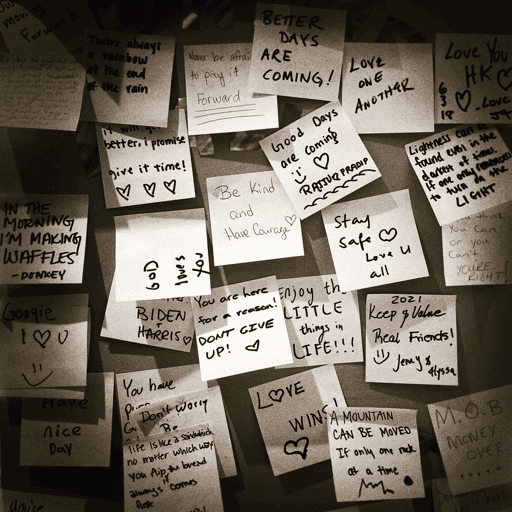 moving
Forward
There's always
a rainbow
at the end
of the rain
Never be afraid
to pay it
Forward
BETTER
DAYS
ARE
COMING!
LOVE
ONE
ANOTHER
Love You
HK
6
3
18
Love
better, I promise
give it time!
Good Days
are coming
Lightness can be
found even in the
darkest of times,
if one only remembers
to turn on the
LIGHT
IN THE
MORNING
I'M MAKING
WAFFLES
-DONKEY
GOD
loves
you
Be Kind
and
Have Courage
Stay
Safe
Love U
all
think
You Can
or you
Can't
YOU'RE
RIGHT!
Google
I U
BIDEN
HARRIS
You are here
for a reason!
DONT GIVE
UP!
Enjoy the
LITTLE
things in
LIFE!!!
2021
Keep & Value
Real Friends!
Jenny &
Alyssa
Have
nice
DAY
You have
Don't Worry
Be
life is like a sandwich
no matter which way
you flip the bread
always comes
first
LOVE
WINS
A MOUNTAIN
CAN BE MOVED
If only one rock
at a time
M.O.B
MONEY
OVER
You're